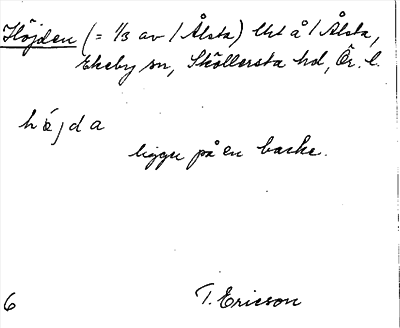 Höjden (= 1/3 av / Ålsta) lht å / Ålsta,
Ekeby sn, Sköllersta hd, Ör. l.
höjda
ligger på en backe.
6
T. Ericson